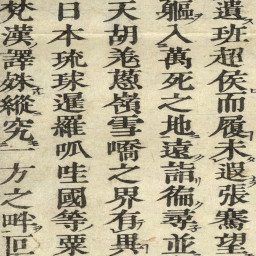 遺班超侯而履未遐張騫望
軀入萬死之地遠詣徧尋並
天胡羌蔥嶺雪嶠之界有
日本琉球暹羅呱哇國等粟
梵漢譯姝縱究一方之畔叵